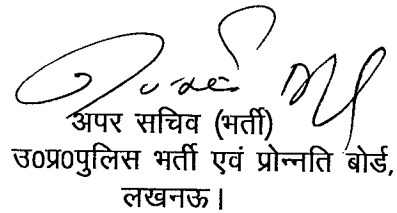 अपर सचिव (भर्ती)
उ०प्र०पुलिस भर्ती एवं प्रोन्नति बोर्ड,
लखनऊ।